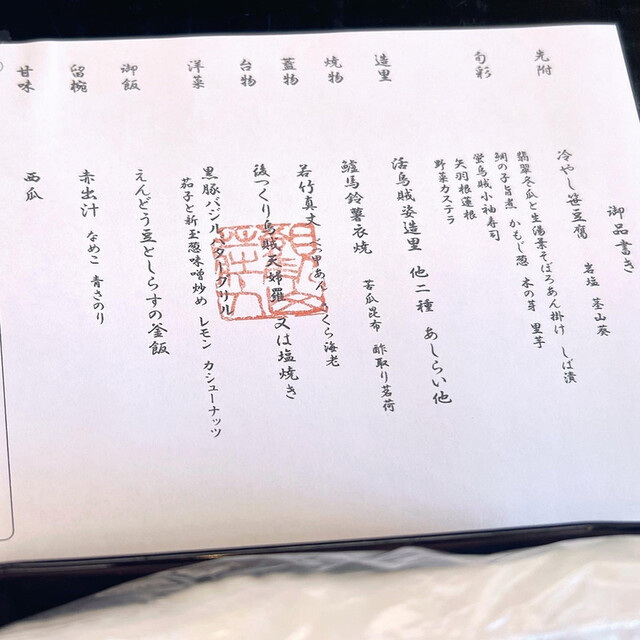 御品書き
光附
冷やし笹豆腐 岩塩 茎山葵
旬彩
翡翠冬瓜と生湯葉そぼろあん掛け しば漬
鯛の子旨煮 かもじ葱 木の芽 里芋
蛍烏賊小袖寿司
矢羽根蓮根
野菜カステラ
造里
活烏賊姿造里 他二種 あしらい他
焼物
鱸馬鈴薯衣焼 苦瓜昆布 酢取り茗荷
蓋物
若竹真丈 くら海老
台物
後つくり烏賊天婦羅 又は塩焼き
洋菜
黒豚バジルバターグリル
茄子と新玉葱味噌炒め レモン カシューナッツ
御飯
えんどう豆としらすの釜飯
留椀
赤出汁 なめこ 青さのり
甘味
西瓜